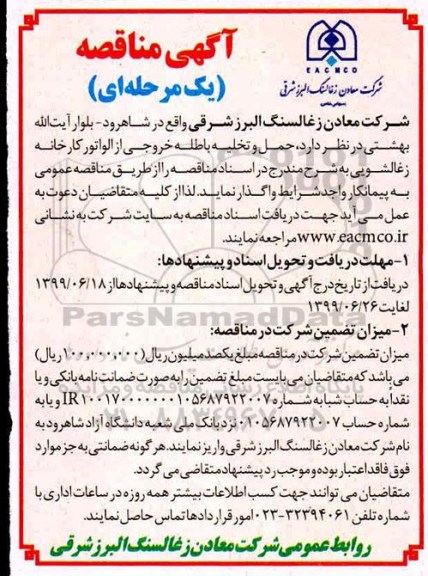 آگهی مناقصه
(یک مرحله‌ای)
EACMCO
شرکت معادن زغالسنگ البرز شرقی
(سهامی خاص)
شرکت معادن زغالسنگ البرز شرقی واقع در شاهرود - بلوار آیت‌الله
بهشتی در نظر دارد، حمل و تخلیه باطله خروجی از الواتور کارخانه
زغالشویی به شرح مندرج در اسناد مناقصه را از طریق مناقصه عمومی
به پیمانکار واجد شرایط واگذار نماید. لذا از کلیه متقاضیان دعوت به
عمل می آید جهت دریافت اسناد مناقصه به سایت شرکت به نشانی
www.eacmco.ir مراجعه نمایند.
۱- مهلت دریافت و تحویل اسناد و پیشنهادها:
دریافت از تاریخ درج آگهی و تحویل اسناد مناقصه و پیشنهادها از ۱۳۹۹/۰۶/۱۸
لغایت ۱۳۹۹/۰۶/۲۶
۲- میزان تضمین شرکت در مناقصه:
میزان تضمین شرکت در مناقصه مبلغ یکصد میلیون ریال (۱۰۰,۰۰۰,۰۰۰ ریال)
می باشد که متقاضیان می بایست مبلغ تضمین را به صورت ضمانت نامه بانکی و یا
نقدا به حساب شبا به شماره IR ۱۰۰۱۷۰۰۰۰۰۰۰۱۰۵۶۸۷۹۲۲۰۰۷ و یا به
شماره حساب ۰۱۰۵۶۸۷۹۲۲۰۰۷ نزد بانک ملی شعبه دانشگاه آزاد شاهرود به
نام شرکت معادن زغالسنگ البرز شرقی واریز نمایند. هر گونه ضمانتی به جز موارد
فوق فاقد اعتبار بوده و موجب رد پیشنهاد متقاضی می گردد.
متقاضیان می توانند جهت کسب اطلاعات بیشتر همه روزه در ساعات اداری با
شماره تلفن ۳۲۳۹۴۰۶۱-۰۲۳ امور قراردادها تماس حاصل نمایند.
روابط عمومی شرکت معادن زغالسنگ البرز شرقی
ParsNamadData